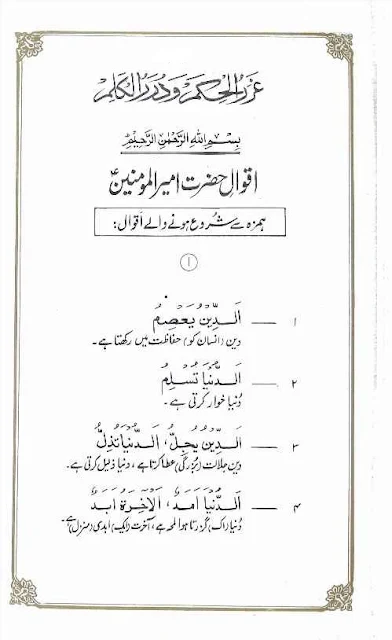 غرر الحکم و درر الکلم
بسم اللہ الرحمٰن الرحیم
اقوالِ حضرت امیر المومنینؑ
ہمزہ سے شروع ہونے والے اقوال:
۱
۱ — اَلدِّیْنُ یَعْصِمُ
دین (انسان کو) حفاظت میں رکھتا ہے۔
۲ — اَلدُّنْیَا تُسْلِمُ
دُنیا خوار کرتی ہے۔
۳ — اَلدِّیْنُ یُجِلُّ، اَلدُّنْیَا تُذِلُّ
دین جلالت (بزرگی) عطا کرتا ہے، دنیا ذلیل کرتی ہے۔
۴ — اَلدُّنْیَا اَمَدٌ، اَلْاٰخِرَۃُ اَبَدٌ
دُنیا (اک) گزرتا ہوا لمحہ ہے، آخرت (ایک) ابدی (منزل) ہے۔